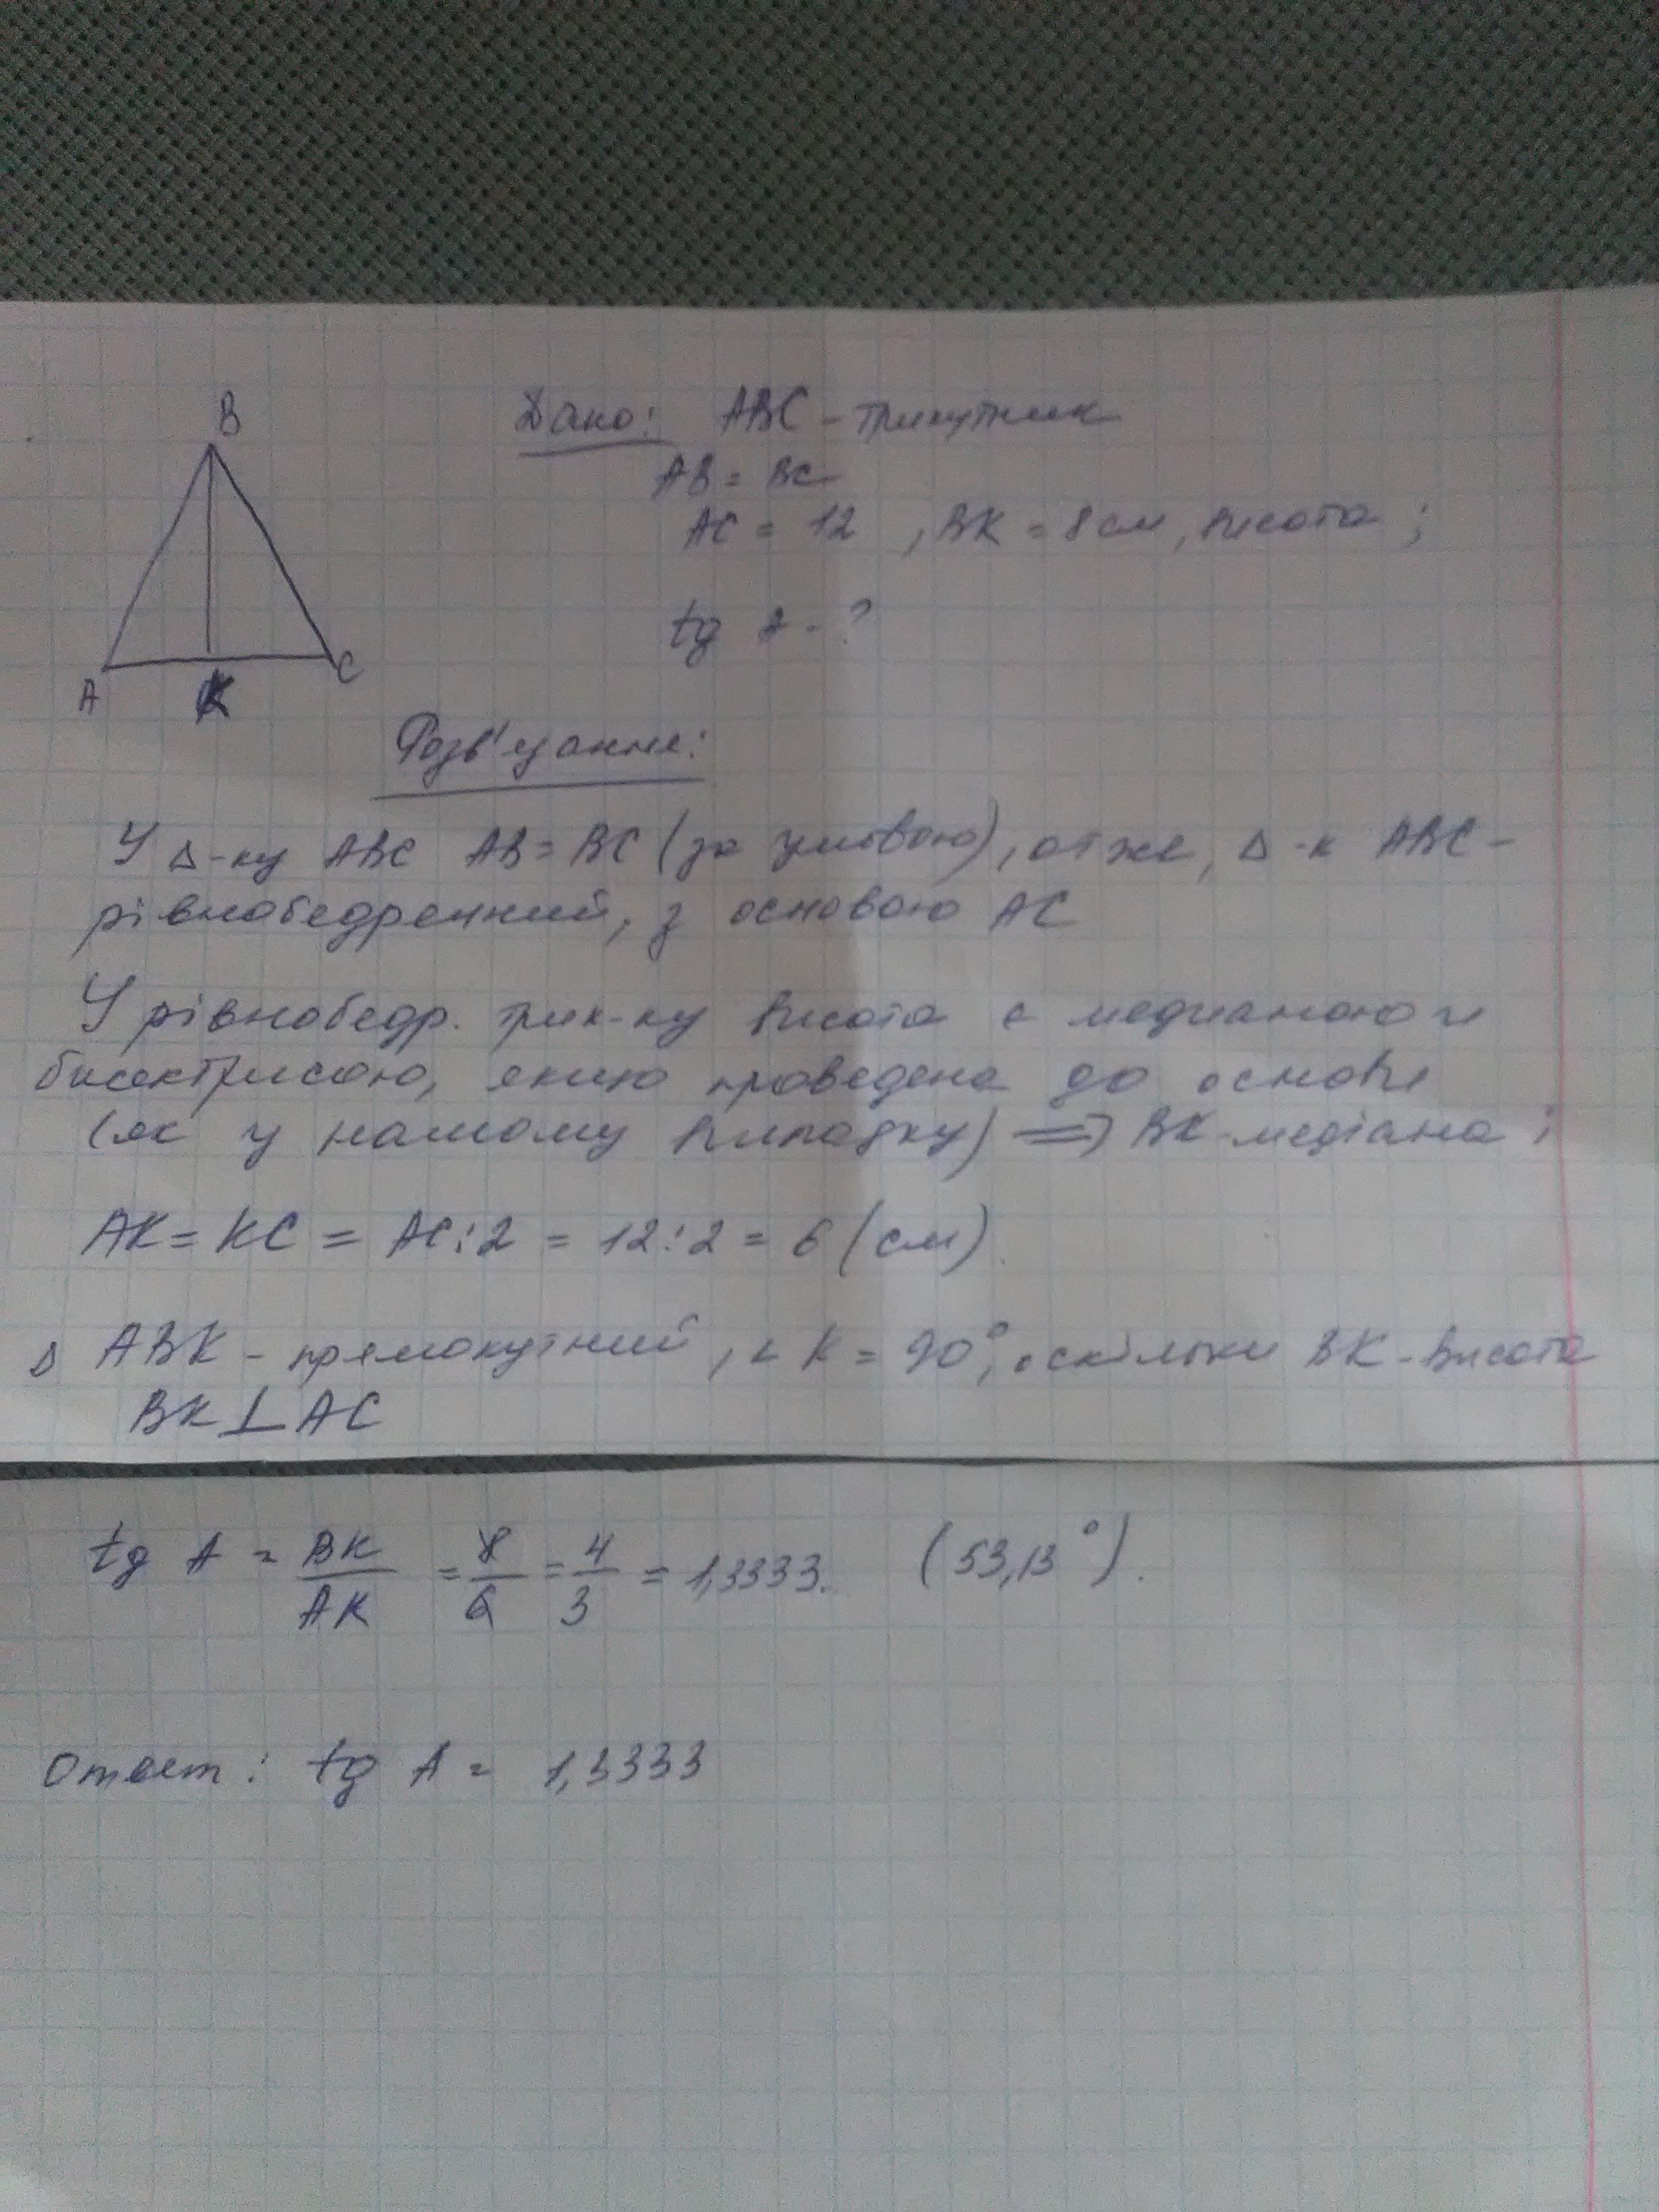 B
A
K
C
Дано: ABC - трикутник
AB = BC
AC = 12 , BK = 8 см, висота ;
tg - ?
Розв'язання:
У Δ-ку ABC AB = BC (за умовою), отже, Δ-к ABC -
рівнобедренний, з основою AC
У рівнобедр. трик-ку висота є медианою и
бисектрисою, якщо проведена до основи
(як у нашому випадку) => BK - медіана ;
AK = KC = AC : 2 = 12 : 2 = 6 (см).
Δ ABK - прямокутний, ∠ K = 90°, оскільки BK - висота
BK ⊥ AC
tg A = BK/AK = 8/6 = 4/3 = 1,3333.. (53,13°).
Ответ: tg A = 1,3333